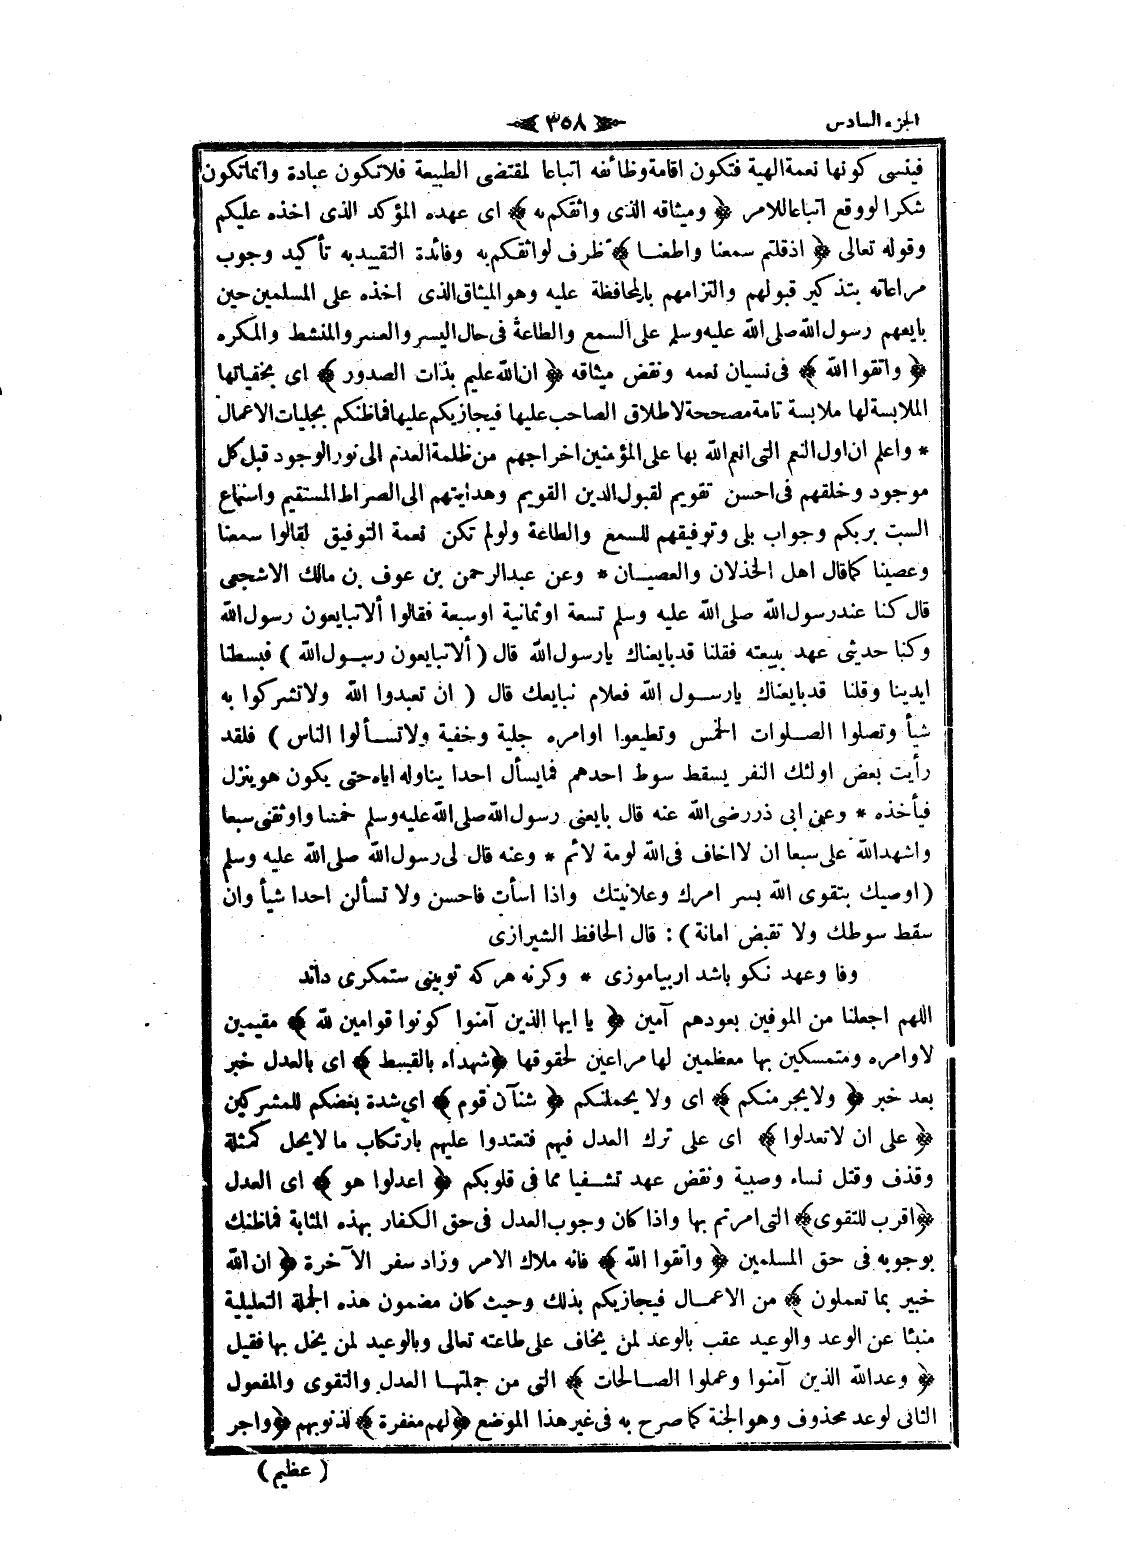 الجزء السادس
﴿ ٣٥٨ ﴾
فينسى كونها نعمة الهية فتكون اقامة وظائفه اتباعا لمقتضى الطبيعة فلاتكون عبادة وانماتكون
شكرا لووقع اتباعا للامر ﴿ وميثاقه الذى واثقكم به ﴾ اى عهده المؤكد الذى اخذه عليكم
وقوله تعالى ﴿ اذقلتم سمعنا واطعنا ﴾ ظرف لواثقكم به وفائدة التقييد به تأكيد وجوب
مراعاته بتذكير قبولهم والتزامهم بالمحافظة عليه وهو الميثاق الذى اخذه على المسلمين حين
بايعهم رسول الله صلى الله عليه وسلم على السمع والطاعة فى حال اليسر والعسر والمنشط والمكره
﴿ واتقوا الله ﴾ فى نسيان نعمه ونقض ميثاقه ﴿ ان الله عليم بذات الصدور ﴾ اى بخفياتها
الملابسة لها ملابسة تامة مصححة لاطلاق الصاحب عليها فيجازيكم عليها فماظنكم بجليات الاعمال
* واعلم ان اول النعم التى انعم الله بها على المؤمنين اخراجهم من ظلمة العدم الى نور الوجود قبل كل
موجود وخلقهم فى احسن تقويم لقبول الدين القويم وهدايتهم الى الصراط المستقيم واستماع
الست بربكم وجواب بلى وتوفيقهم للسمع والطاعة ولولم تكن نعمة التوفيق لقالوا سمعنا
وعصينا كماقال اهل الخذلان والعصيان * وعن عبدالرحمن بن عوف بن مالك الاشجعى
قال كنا عند رسول الله صلى الله عليه وسلم تسعة اوثمانية اوسبعة فقالوا ألاتبايعون رسول الله
وكنا حديثى عهد ببيعته فقلنا قدبايعناك يارسول الله قال ( ألاتبايعون رسول الله ) فبسطنا
ايدينا وقلنا قدبايعناك يارسول الله فعلام نبايعك قال ( ان تعبدوا الله ولاتشركوا به
شيأ وتصلوا الصلوات الخمس وتطيعوا اوامره جلية وخفية ولاتسألوا الناس ) فلقد
رأيت بعض اولئك النفر يسقط سوط احدهم فمايسأل احدا يناوله اياه حتى يكون هو ينزل
فيأخذه * وعن ابى ذر رضى الله عنه قال بايعنى رسول الله صلى الله عليه وسلم خمسا واوثقنى سبعا
واشهد الله على سبعا ان لااخاف فى الله لومة لائم * وعنه قال لى رسول الله صلى الله عليه وسلم
( اوصيك بتقوى الله بسر امرك وعلانيتك واذا اسأت فاحسن ولا تسألن احدا شيأ وان
سقط سوطك ولا تقبض امانة ) : قال الحافظ الشيرازى
وفا وعهد نكو باشد ار بياموزى * وكرنه هركه توبينى ستمكرى داند
اللهم اجعلنا من الموفين بعودهم آمين ﴿ يا ايها الذين آمنوا كونوا قوامين لله ﴾ مقيمين
لاوامره ومتمسكين بها معظمين لها مراعين لحقوقها ﴿ شهداء بالقسط ﴾ اى بالعدل خبر
بعد خبر ﴿ ولايجرمنكم ﴾ اى ولا يحملنكم ﴿ شنآن قوم ﴾ اى شدة بغضكم للمشركين
﴿ على ان لاتعدلوا ﴾ اى على ترك العدل فيهم فتعتدوا عليهم بارتكاب ما لايحل كمثلة
وقذف وقتل نساء وصبية ونقض عهد تشفيا مما فى قلوبكم ﴿ اعدلوا هو ﴾ اى العدل
﴿ اقرب للتقوى ﴾ التى امرتم بها واذا كان وجوب العدل فى حق الكفار بهذه المثابة فماظنك
بوجوبه فى حق المسلمين ﴿ واتقوا الله ﴾ فانه ملاك الامر وزاد سفر الآخرة ﴿ ان الله
خبير بما تعملون ﴾ من الاعمال فيجازيكم بذلك وحيث كان مضمون هذه الجملة التعليلية
منبئا عن الوعد والوعيد عقب بالوعد لمن يخاف على طاعته تعالى وبالوعيد لمن يخل بها فقيل
﴿ وعد الله الذين آمنوا وعملوا الصالحات ﴾ التى من جملتها العدل والتقوى والمفعول
الثانى لوعد محذوف وهو الجنة كما صرح به فى غير هذا الموضع ﴿ لهم مغفرة ﴾ لذنوبهم ﴿ واجر
( عظيم )